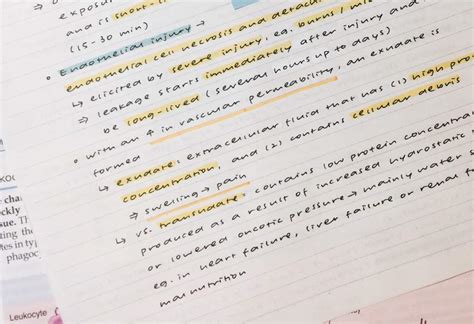 exposu
and is short-l
(15-30 min)
• Endothelial injury →
endothelial cell necrosis and detac
↳ elicited by severe injury, eg. burns / mi
⇒ leakage starts immediately after injury and
be long-lived (several hours up to days)
• with an ↑ in vascular permeability, an exudate is
formed
↳ exudate: extracellular fluid that has (1) high pro
concentration, and (2) contains cellular debris
⇒ swelling → pain
↳ vs. transudate: contains low protein concentra
produced as a result of increased hydrostatic
or lowered oncotic pressure → mainly water s
eg. in heart failure, liver failure or renal f
malnutrition
cha
ckly
sue. T
ting the
tes in tyj
phagoc
Leukocyte